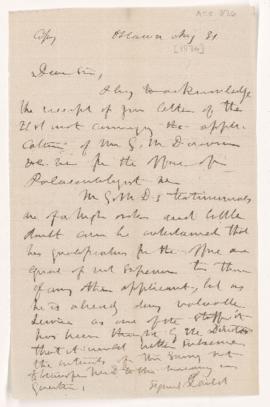 Copy Ottawa Aug 31
[1876]
Dear Sir,
I beg to acknowledge
the receipt of your letter of the
21st inst conveying the appli-
cation of Mr G. M. Dawson
for the office of
Palaeontologist
Mr G. M. D's testimonials
are of a high order and little
doubt can be entertained that
his qualifications for the office are
equal if not superior to those
of any other applicant, but as
he is already doing valuable
service as one of the staff it
has been thought by the Director
that it would better subserve
the interests of the Survey not
to transfer him to the
question.
Signed